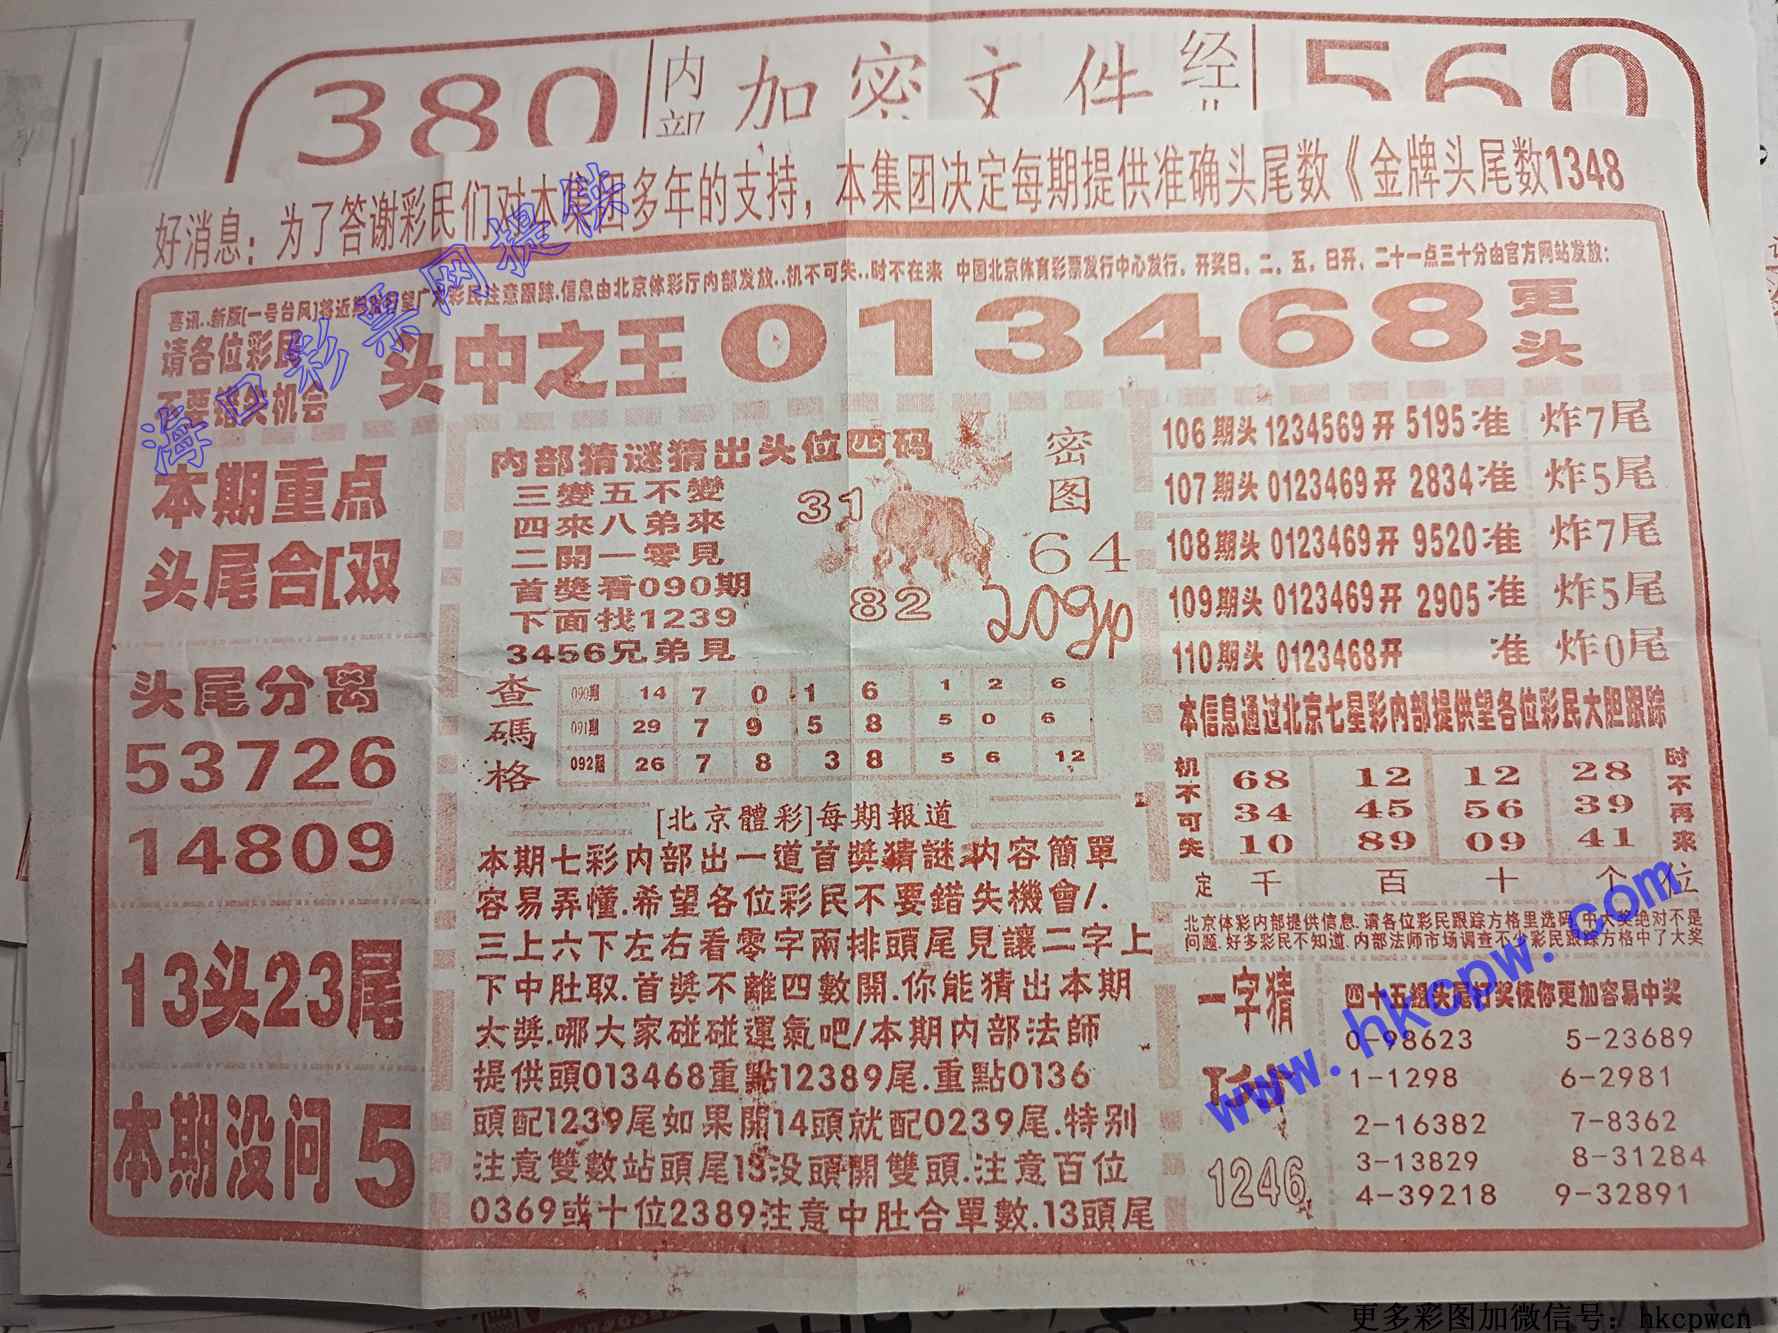 380
内部
加密文件
经
560
好消息：为了答谢彩民们对本集团多年的支持，本集团决定每期提供准确头尾数《金牌头尾数1348
喜讯..新版[一号台风]将近期发行望广大彩民注意跟踪.信息由北京体彩厅内部发放..机不可失..时不在来 中国北京体育彩票发行中心发行，开奖日，二，五，日开，二十一点三十分由官方网站发放：
请各位彩民
不要错失机会
头中之王013468
更头
本期重点
头尾合[双
头尾分离
53726
14809
13头23尾
本期没问5
内部猜谜猜出头位四码
三變五不變
四來八弟來
二開一零見
首獎看090期
下面找1239
3456兄弟見
31
82
密图
64
209
查碼格
090期 14 7 0 1 6 1 2 6
091期 29 7 9 5 8 5 0 6
092期 26 7 8 3 8 5 6 12
[北京體彩]每期報道
本期七彩内部出一道首獎猜謎.内容簡單
容易弄懂.希望各位彩民不要錯失機會/.
三上六下左右看零字兩排頭尾見讓二字上
下中肚取.首獎不離四數開.你能猜出本期
大獎.哪大家碰碰運氣吧/本期内部法師
提供頭013468重點12389尾.重點0136
頭配1239尾如果開14頭就配0239尾.特别
注意雙數站頭尾13没頭開雙頭.注意百位
0369或十位2389注意中肚合單數.13頭尾
106期头1234569开5195准 炸7尾
107期头0123469开2834准 炸5尾
108期头0123469开9520准 炸7尾
109期头0123469开2905准 炸5尾
110期头0123468开 准 炸0尾
本信息通过北京七星彩内部提供望各位彩民大胆跟踪
机不可失
68 12 12 28
34 45 56 39
10 89 09 41
时不再来
定 千 百 十 个 位
北京体彩内部提供信息.请各位彩民跟踪方格里选码.中大奖绝对不是
问题.好多彩民不知道.内部法师市场调查不少彩民跟踪方格中了大奖
一字猜
1246
四十五组头尾打奖使你更加容易中奖
0-98623 5-23689
1-1298 6-2981
2-16382 7-8362
3-13829 8-31284
4-39218 9-32891
海口彩票网提供
www.hkcpw.com
更多彩图加微信号：hkcpwcn